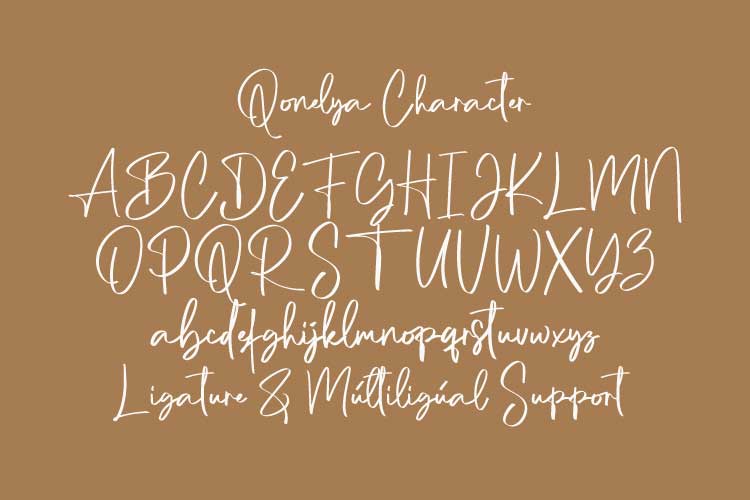 Qonelya Character
ABCDEFGHIJKLMN
OPQRSTUVWXYZ
abcdefghijklmnopqrstuvwxyz
Ligature & Múltiligúal Support